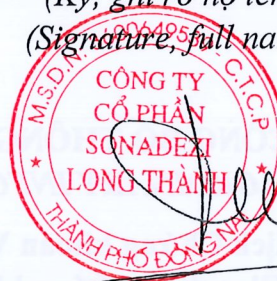 (Ký, ghi rõ họ tên
(Signature, full na
M.S.D.N:
- C.T.C.P
CÔNG TY
CỔ PHẦN
SONADEZI
LONG THÀNH
THÀNH PHỐ ĐỒNG NAI